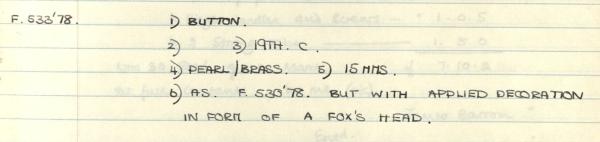 F. 533'78. 1) BUTTON.
2) 3) 19TH. C.
4) PEARL/BRASS. 5) 15 MMS.
6) AS. F. 530'78. BUT WITH APPLIED DECORATION
IN FORM OF A FOX'S HEAD.